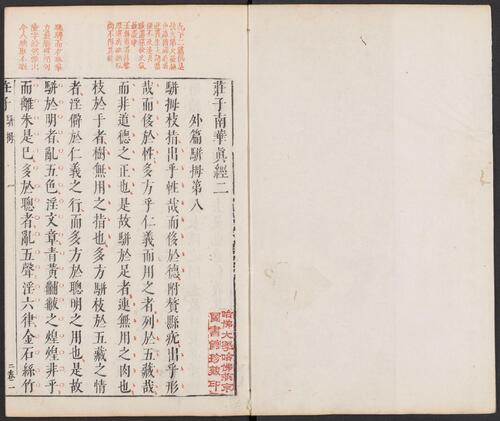 莊子南華眞經二
外篇駢拇第八
駢拇枝指出乎性哉而侈於德附贅縣疣出乎形
哉而侈於性多方乎仁義而用之者列於五藏哉
而非道德之正也是故駢於足者連無用之肉也
枝於手者樹無用之指也多方駢枝於五藏之情
者淫僻於仁義之行而多方於聰明之用也是故
駢於明者亂五色淫文章青黃黼黻之煌煌非乎
而離朱是已多於聰者亂五聲淫六律金石絲竹
莊子
駢拇
一
三卷一
哈佛大學哈佛燕京
圖書館珍藏印